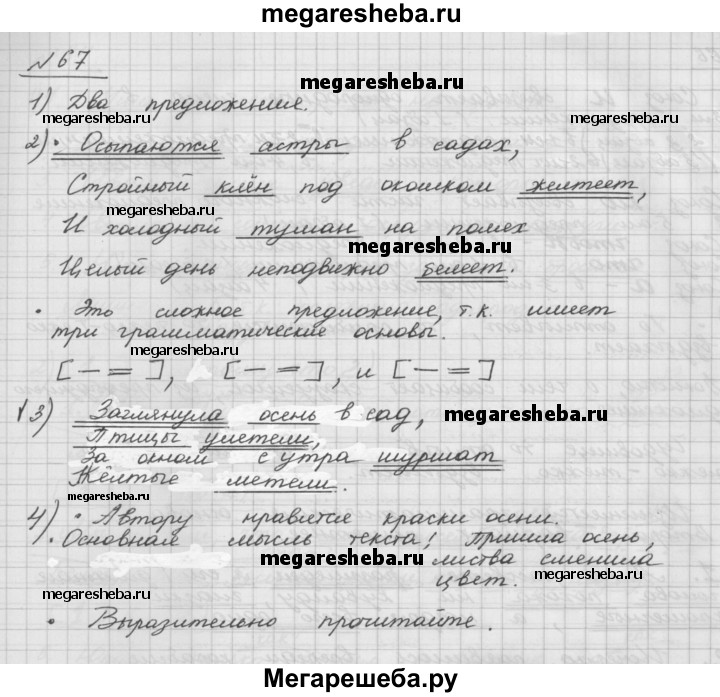 megaresheba.ru
№ 67
megaresheba.ru
1) Два предложения.
megaresheba.ru
megaresheba.ru
2) • Осыпаются астры в садах,
Стройный клён под окошком желтеет,
megaresheba.ru
И холодный туман на полях
megaresheba.ru
Целый день неподвижно белеет.
• Это сложное предложение, т.к. имеет
три грамматические основы.
megaresheba.ru
[— =], [— =], и [— =]
3) Заглянула осень в сад,
megaresheba.ru
Птицы улетели,
За окном с утра шуршат
Жёлтые метели.
megaresheba.ru
4) • Автору нравятся краски осени.
• Основная мысль текста! Пришла осень,
листва сменила
megaresheba.ru
цвет.
megaresheba.ru
megaresheba.ru
• Выразительно прочитайте.
Мегарешеба.ру